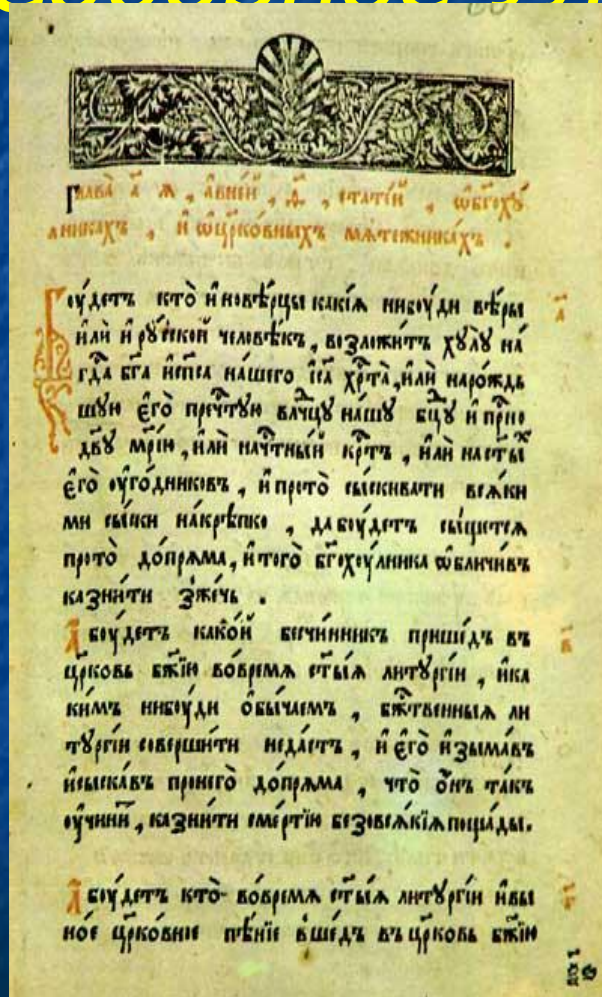 Глава̀ а҃ я , а҆вне́й , д҃ , статїи , ѡ҆бг҃оху́
лникахъ , и҆ ѡ҆цр҃ко́вныхъ мѧте́жникахъ .
Бꙋ́детъ кто̀ и҆новѣ́рцы какі́ѧ нибꙋ́ди вѣ́ры
и҆лѝ и҆ рꙋ́ской человѣ́къ , возложи́тъ хꙋлꙋ̀ на́
гд҇а бг҃а и҆сп҃са на́шего і҆с҃а хр҇та̀ , и҆лѝ наро́ждь
шꙋю є҆го̀ преч҇тꙋю влч҇цꙋ на́шꙋ бц҃ꙋ и҆ пр҇но
дв҃ꙋ мр҃і́ю , и҆лѝ нач҇тны́й кр҇тъ , и҆лѝ наст҃ы́х
є҆го̀ ѹ҆го́дниковъ , и҆прото̀ сы́скивати всѧ́ки
ми сы́ски на́крѣпко , дабꙋ́детъ сы́щетсѧ
прото̀ до́прѧма , и҆того̀ бг҃охꙋ́лника ѡ҆бличи́въ
казни́ти зже́чь .
А҆ бꙋ́детъ како́й бесчи́нникъ прише́дъ въ
цр҃ковь бж҃їю во́времѧ ст҃ы́ѧ литꙋргі́и , и҆ка
ки́мъ нибꙋ́ди ѻ҆бы́чаемъ , бж҇твенныѧ ли
тꙋргі́и соверши́ти неда́стъ , и҆ є҆го̀ и҆зыма́въ
и҆сыска́въ пронего̀ до́прѧма , что̀ ѻ҆́нъ та́къ
ѹ҆чини́т , казни́ти сме́ртїю безовсѧ́кїѧ поща́ды .
А҆ бꙋ́детъ кто̀ во́времѧ ст҃ы́ѧ литꙋргі́и и҆вы
но́е цр҃ко́вное пѣ́нїе вше́дъ въ цр҃ковь бж҃їю